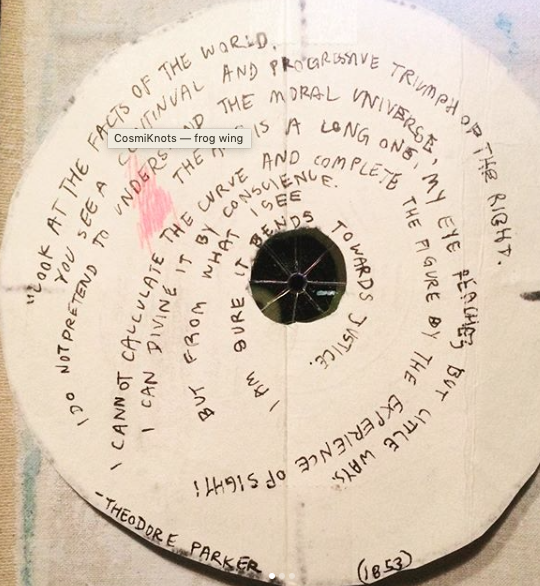 "LOOK AT THE FACTS OF THE WORLD.
YOU SEE A CONTINUAL AND PROGRESSIVE TRIUMPH OF THE RIGHT.
I DO NOT PRETEND TO UNDERSTAND THE MORAL UNIVERSE,
THE IS A LONG ONE, MY EYE REACHES BUT LITTLE WAYS.
I CANNOT CALCULATE THE CURVE AND COMPLETE THE FIGURE BY THE EXPERIENCE OF SIGHT;
I CAN DIVINE IT BY CONSCIENCE.
BUT FROM WHAT I SEE
I AM SURE IT BENDS TOWARDS JUSTICE.
-THEODORE PARKER
(1853)
CosmiKnots — frog wing